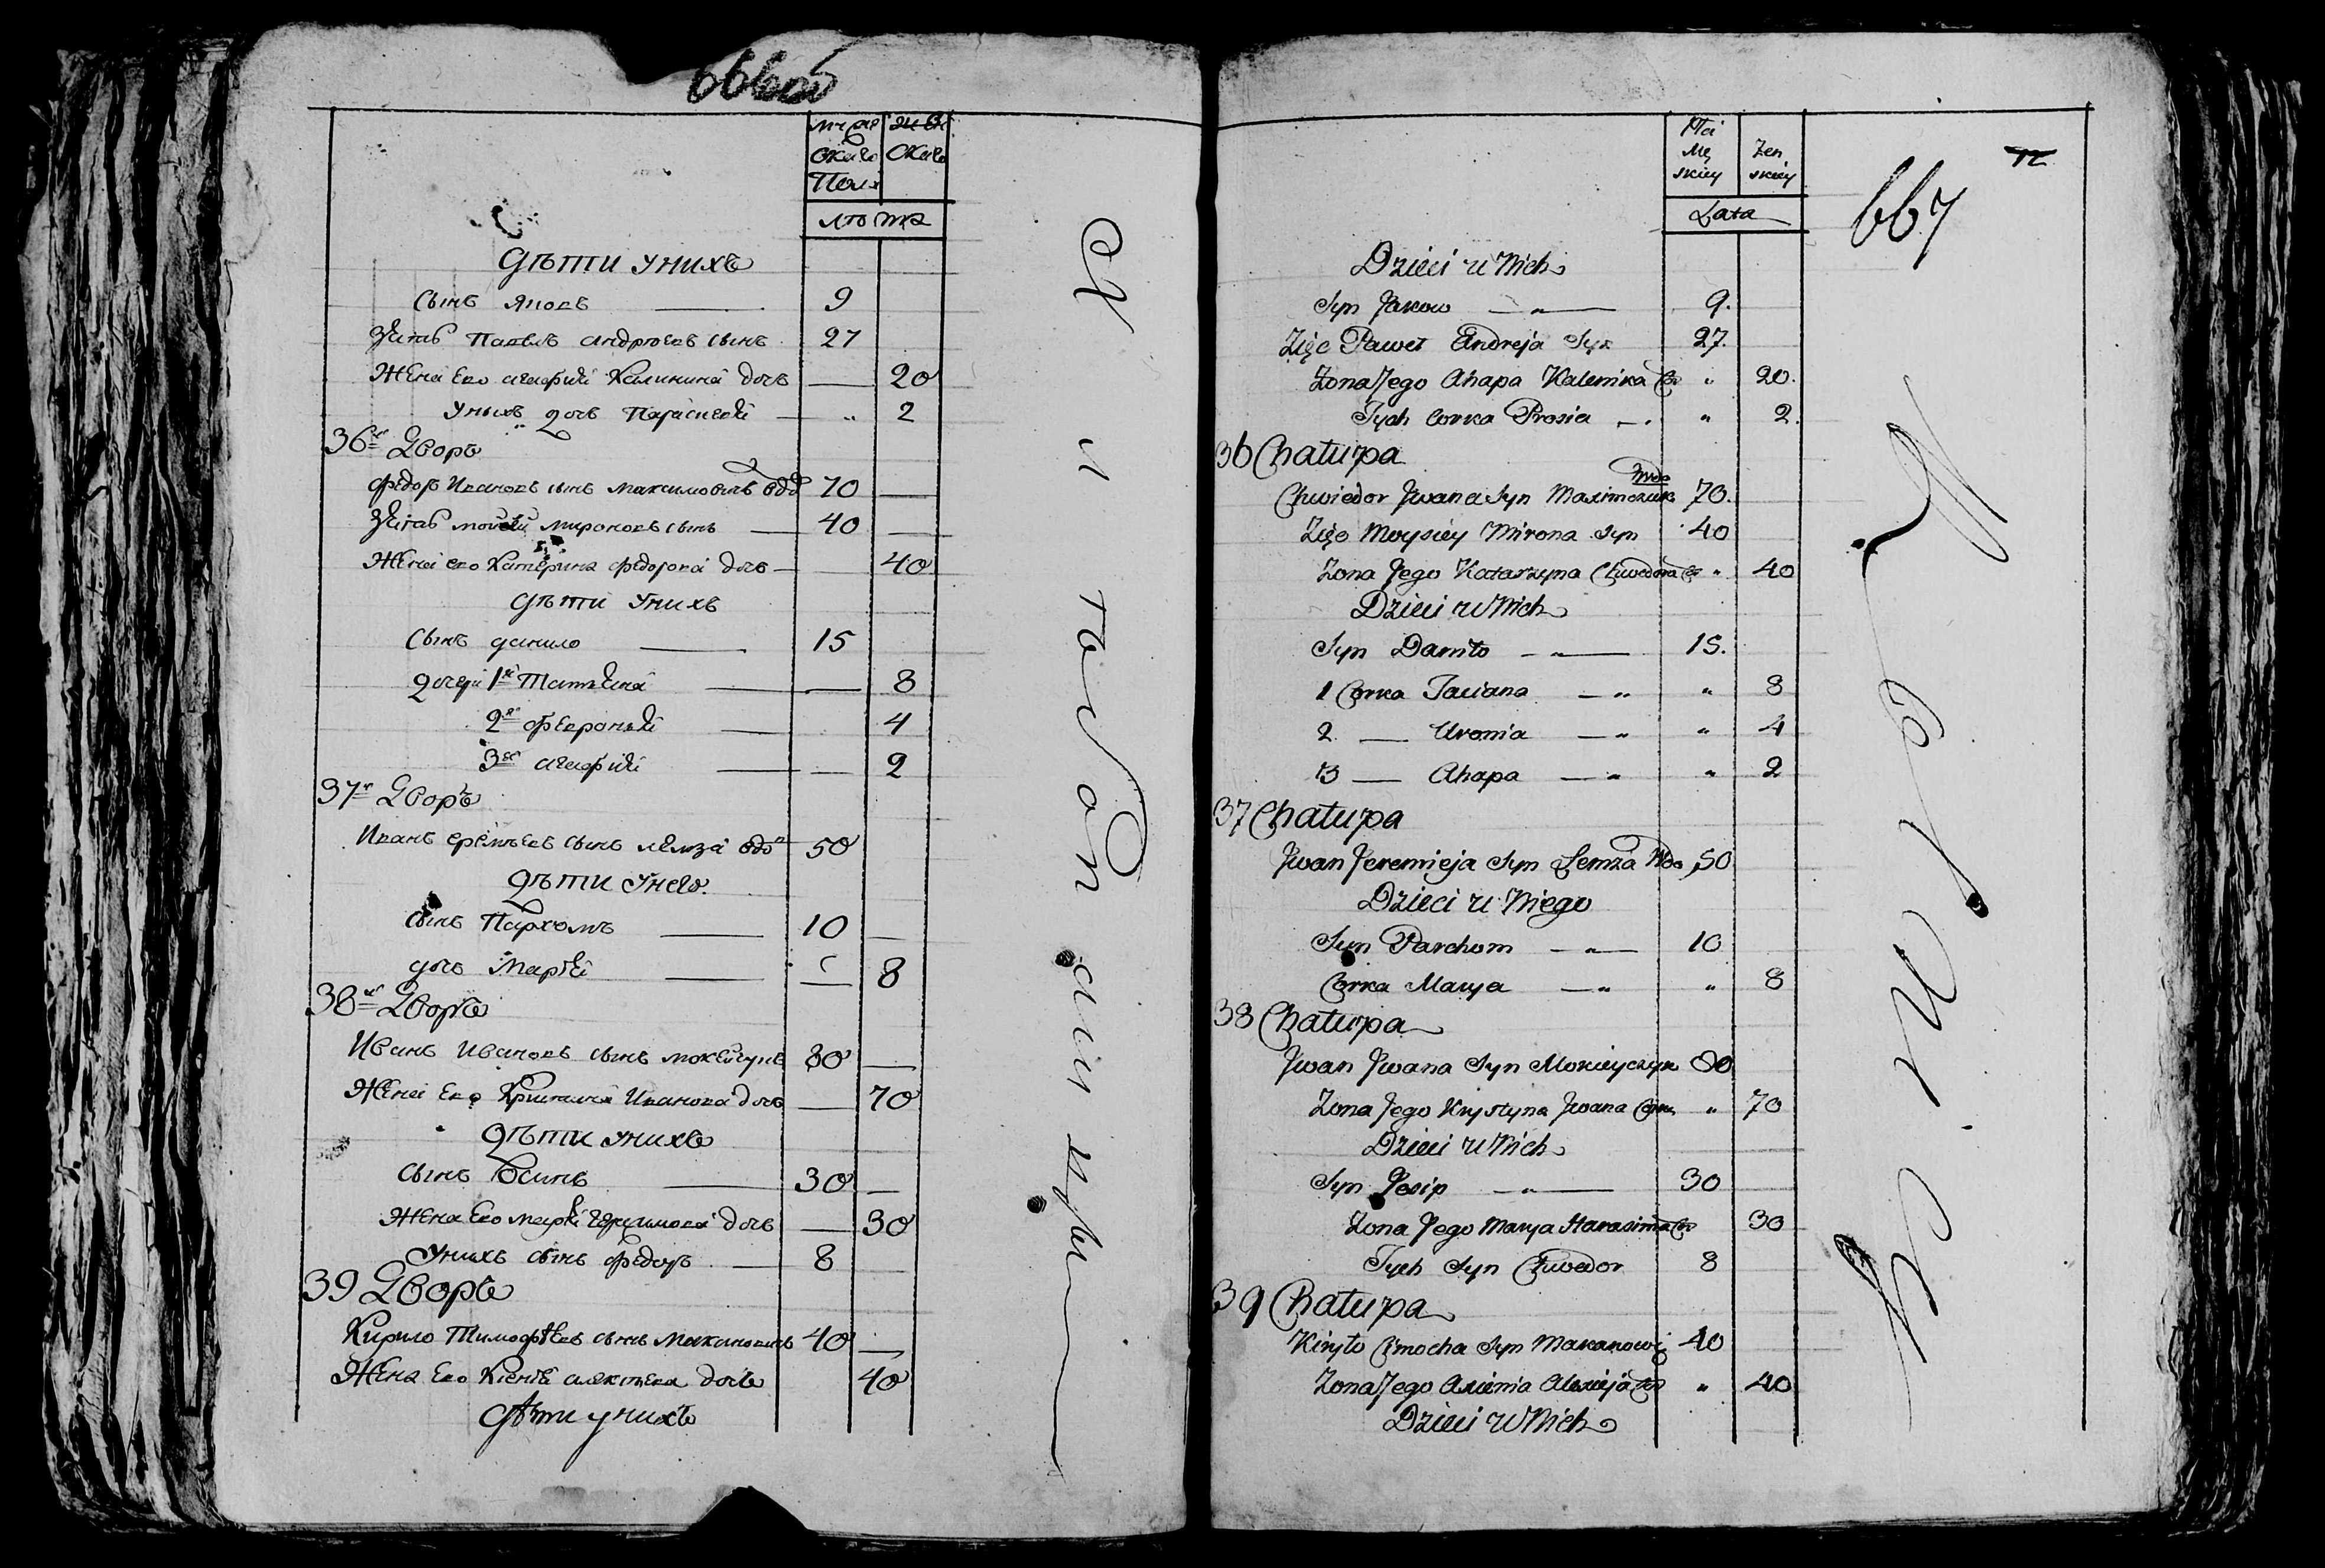 666 об
мужеска женска
Пола
лѣта
Дѣти у нихъ
Сынъ Яковъ 9
Зять Павелъ Андрѣевъ сынъ 27
Жена его Агафия Калинина дочь 20
У нихъ дочь Параскевия 2
36й Дворъ
Федоръ Ивановъ сынъ Максимовичъ вдо 70
Зять Мойсей Мироновъ сынъ 40
Жена его Катерина Федорова дочь 40
Дѣти у нихъ
Сынъ Данило 15
Дочери 1я Татьяна 8
2я Феврония 4
3я Агафия 2
37й Дворъ
Иванъ Еремѣевъ сынъ Лемза вдо 50
Дѣти у него
Сынъ Пархомъ 10
дочь Мария 8
38й Дворъ
Иванъ Ивановъ сынъ Мокейчукъ 80
Жена его Кристина Иванова дочь 70
Дѣти у нихъ
Сынъ Осипъ 30
Жена его Мария Герасимова дочь 30
У нихъ сынъ Федоръ 8
39 Дворъ
Кирило Тимофѣевъ сынъ Макановичъ 40
Жена его Ксения Алексѣева дочь 40
Дѣти у нихъ
667
12
Płci
Mę skiey Żen skiey
Lata
Dzieci u Nich
Syn Jakow 9.
Zięć Paweł Andreja Syn 27.
Żona Jego Ahapa Kalenika Cor 20.
Tych Corka Prosia 2.
36 Chałupa
Chwiedor Jwana Syn Maximczuk Wdo 70.
Zięć Moysiey Mirona Syn 40
Żona Jego Katarzyna Chwedora Cor 40
Dzieci u Nich
Syn Daniło 15.
1 Corka Taciana 8
2 — Uronia 4
3 — Ahapa 2
37 Chałupa
Jwan Jeremieja Syn Lemza Wdo 50
Dzieci u Niego
Syn Parchom 10
Corka Marya 8
38 Chałupa
Jwan Jwana Syn Mokieyczuk 80
Żona Jego Krystyna Jwana Corka 70
Dzieci u Nich
Syn Josip 30
Żona Jego Marya Harasima Cor 30
Tych Syn Chwedor 8
39 Chałupa
Kiryło Cimocha Syn Makanowicz 40
Żona Jego Axienia Alexieja Cor 40
Dzieci u Nich